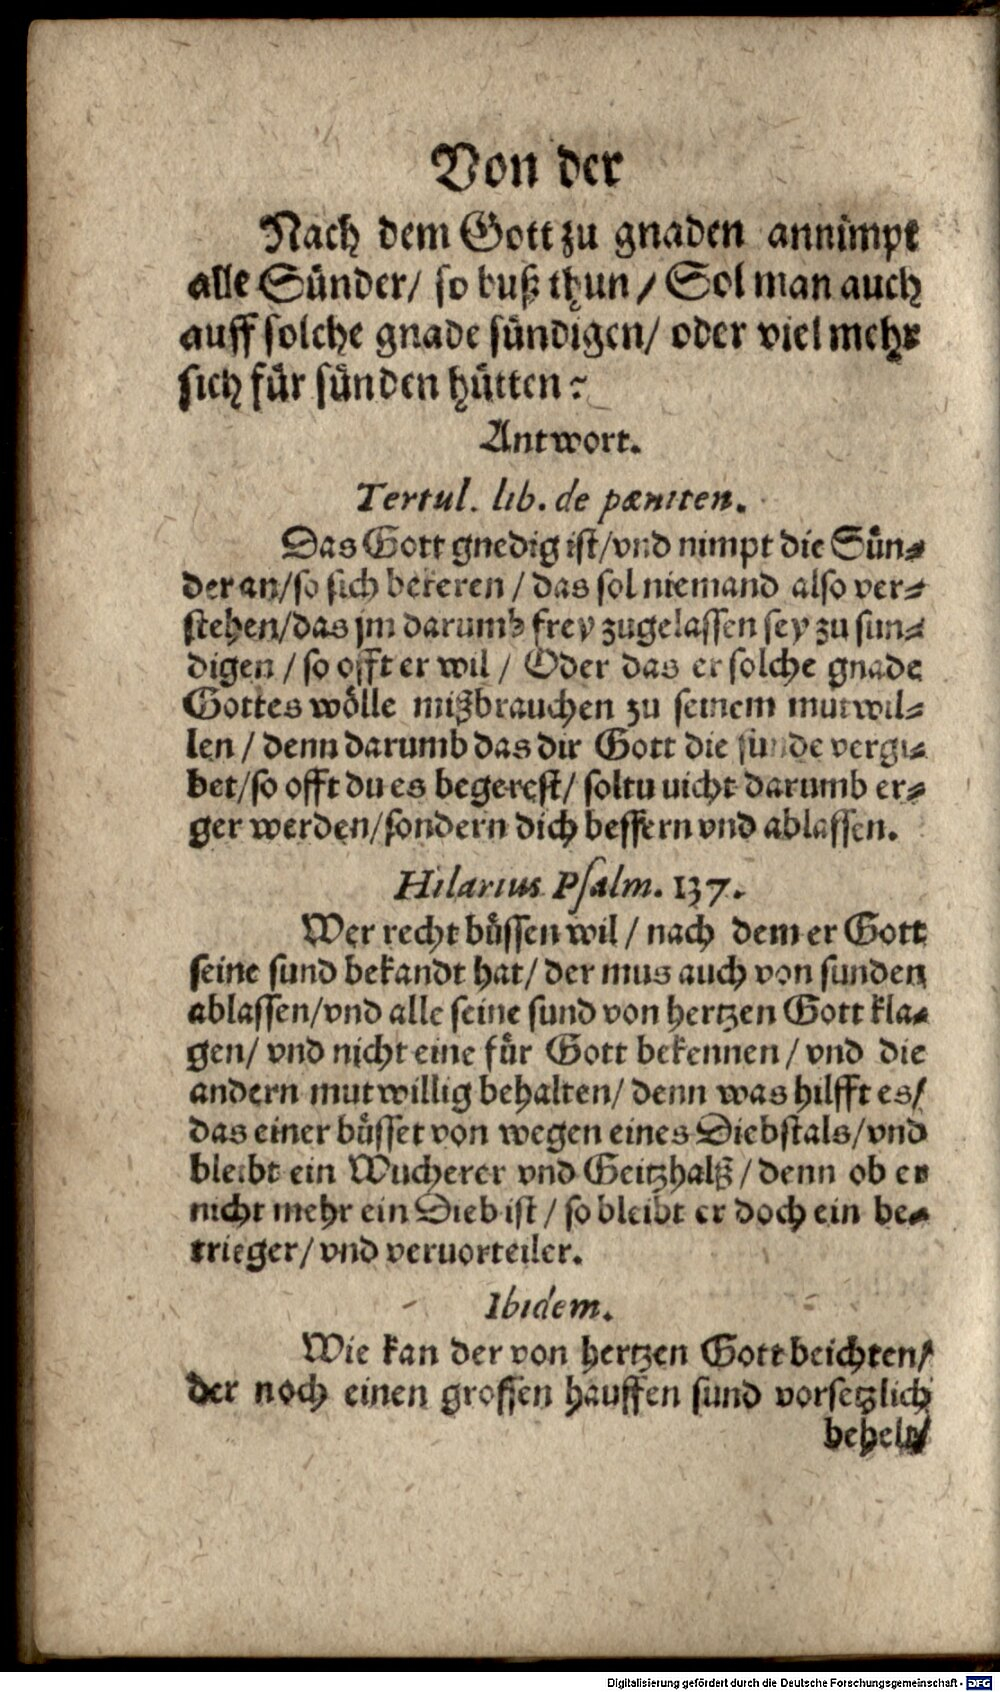 Von der
Nach dem Gott zu gnaden annimpt
alle Sünder/ so buß thun/ Sol man auch
auff solche gnade sündigen/ oder viel mehr
sich für sünden hütten?
Antwort.
Tertul. lib. de pæniten.
Das Gott gnedig ist/vnd nimpt die Sün-
der an/so sich bekeren/ das sol niemand also ver-
stehen/das jm darumb frey zugelassen sey zu sun-
digen/ so offt er wil/ Oder das er solche gnade
Gottes wölle mißbrauchen zu seinem mutwil-
len/ denn darumb das dir Gott die sunde vergi-
bet/so offt du es begerest/ soltu nicht darumb er-
ger werden/sondern dich bessern vnd ablassen.
Hilarius Psalm. 137.
Wer recht büssen wil/ nach dem er Gott
seine sund bekandt hat/ der mus auch von sunden
ablassen/vnd alle seine sund von hertzen Gott kla-
gen/ vnd nicht eine für Gott bekennen/ vnd die
andern mutwillig behalten/ denn was hilfft es/
das einer büsset von wegen eines Diebstals/vnd
bleibt ein Wucherer vnd Geitzhalß/ denn ob er
nicht mehr ein Dieb ist/ so bleibt er doch ein be-
trieger/ vnd veruorteiler.
Ibidem.
Wie kan der von hertzen Gott beichten/
der noch einen grossen hauffen sund vorsetzlich
behelt/
Digitalisierung gefördert durch die Deutsche Forschungsgemeinschaft - DFG